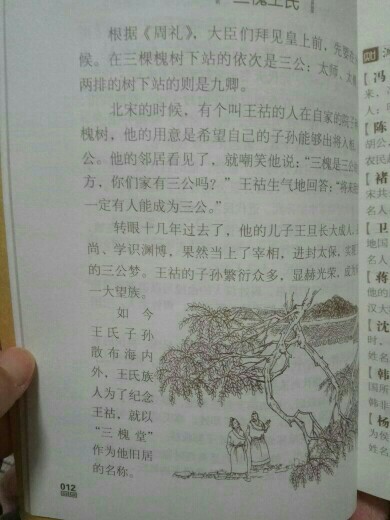 三槐王氏
根据《周礼》，大臣们拜见皇上前，先要在
候。在三棵槐树下站的依次是三公：太师、太
两排的树下站的则是九卿。
北宋的时候，有个叫王祜的人在自家的院子
槐树，他的用意是希望自己的子孙能够出将入相，
公。他的邻居看见了，就嘲笑他说：“三槐是三公
方，你们家有三公吗？” 王祜生气地回答：“将来
一定有人能成为三公。”
转眼十几年过去了，他的儿子王旦长大成人，
尚、学识渊博，果然当上了宰相，进封太保，实现
的三公梦。王祜的子孙繁衍众多，显赫光荣，成为
一大望族。
如今
王氏子孙
散布海内
外，王氏族
人为了纪念
王祜，就以
“三槐堂”
作为他旧居
的名称。
012
【冯
来，
人：
【陈
胡公
农民
【褚
宋共
名人
【卫
地国
名人
【蒋
他的
汉大
【沈
时，
姓名
【韩
国所
韩非
【杨
为侯
姓名